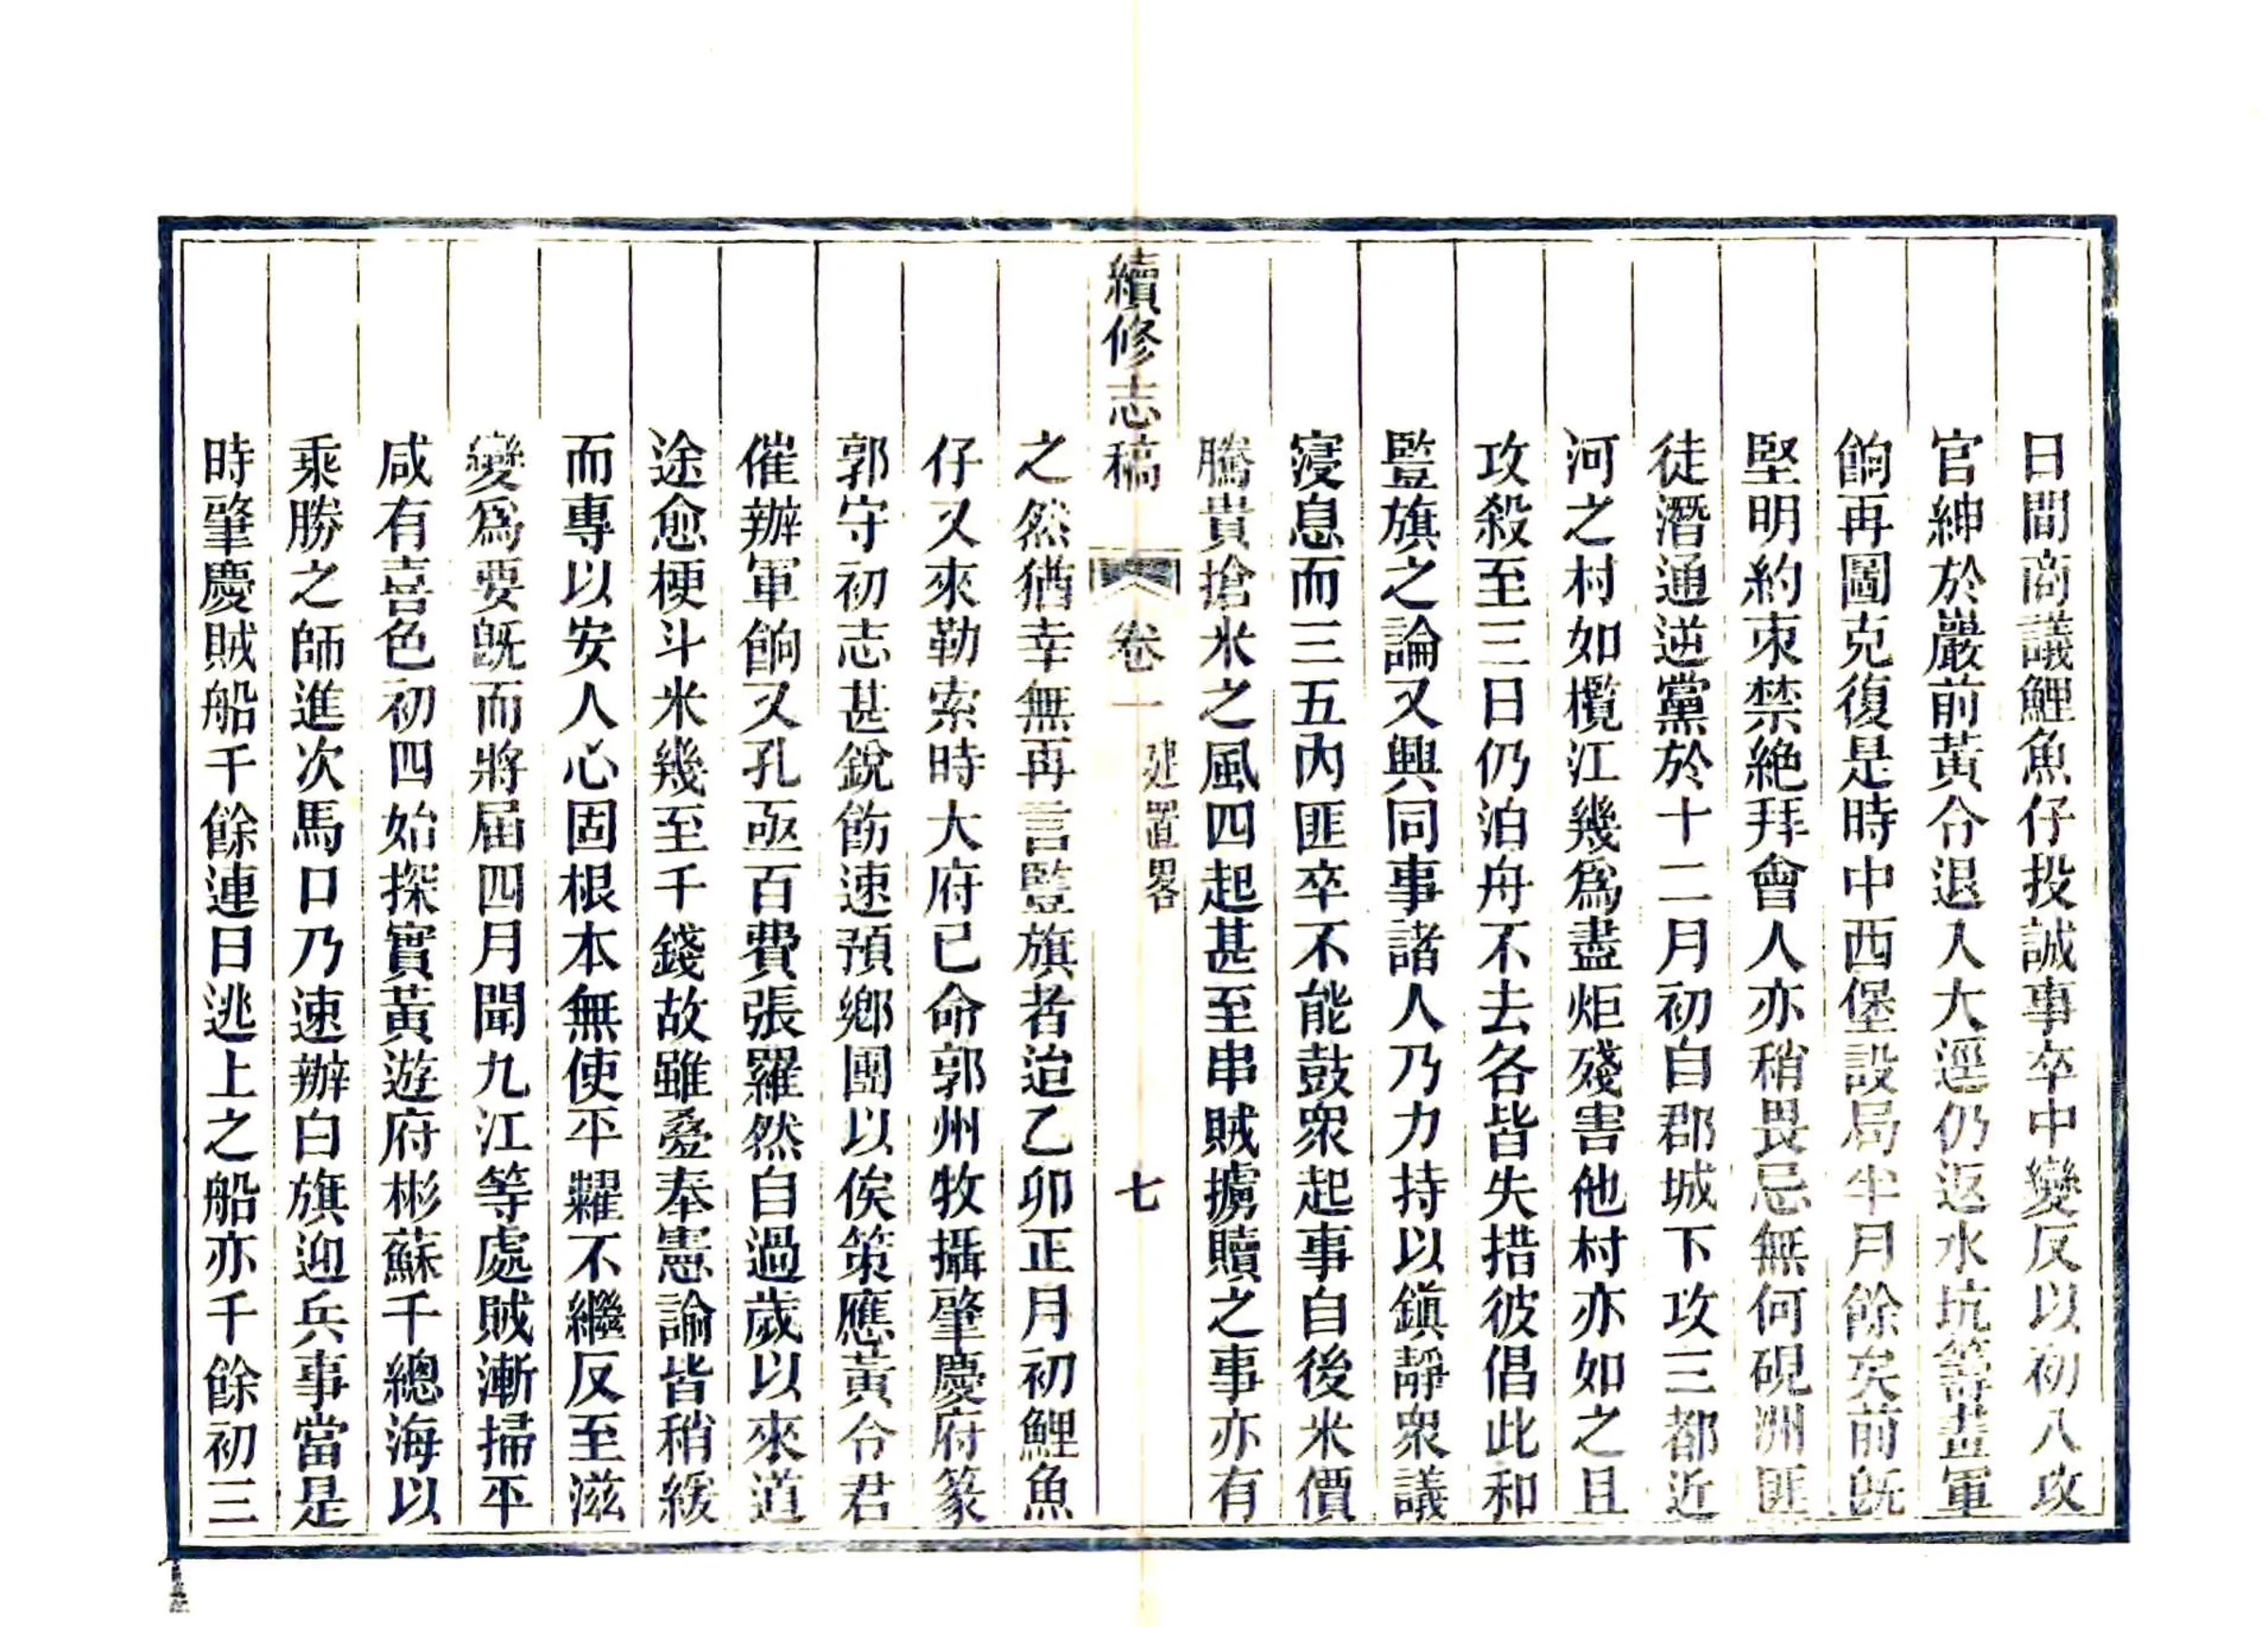 日間商議鯉魚仔投誠事卒中變反以初八攻
官紳於巖前黃令退入大逕仍返水坑籌畫軍
餉再圖克復是時中西堡設局半月餘矣前旣
堅明約束禁絶拜會人亦稍畏忌無何硯洲匪
徒潛通逆黨於十二月初自郡城下攻三都近
河之村如欖江幾爲盡炬殘害他村亦如之且
攻殺至三日仍泊舟不去各皆失措彼倡此和
豎旗之論又興同事諸人乃力持以鎭靜衆議
寖息而三五內匪卒不能鼓衆起事自後米價
騰貴搶米之風四起甚至串賊擄贖之事亦有
續修志稿
卷一
建置畧
七
之然猶幸無再言豎旗者迨乙卯正月初鯉魚
仔又來勒索時大府已命郭州牧攝肇慶府篆
郭守初志甚銳飭速預鄉團以俟策應黃令君
催辦軍餉又孔亟百費張羅然自過歲以來道
途愈梗斗米幾至千錢故雖叠奉憲諭皆稍緩
而專以安人心固根本無使平糶不繼反至滋
變爲要旣而將届四月聞九江等處賊漸掃平
咸有喜色初四始探實黃遊府彬蘇千總海以
乘勝之師進次馬口乃速辦白旗迎兵事當是
時肇慶賊船千餘連日逃上之船亦千餘初三